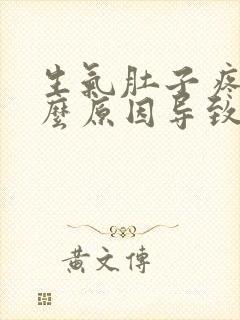 生氣肚子疼
麼原因导致
黃文傳